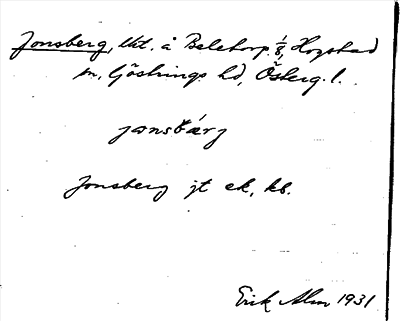 Jonsberg, lht. å Beletorp 1/8, Hogstad
sn, Göstrings hd, Österg. l.
jɷnsbärj
Jonsberg jt ek, kb.
Erik Alm 1931